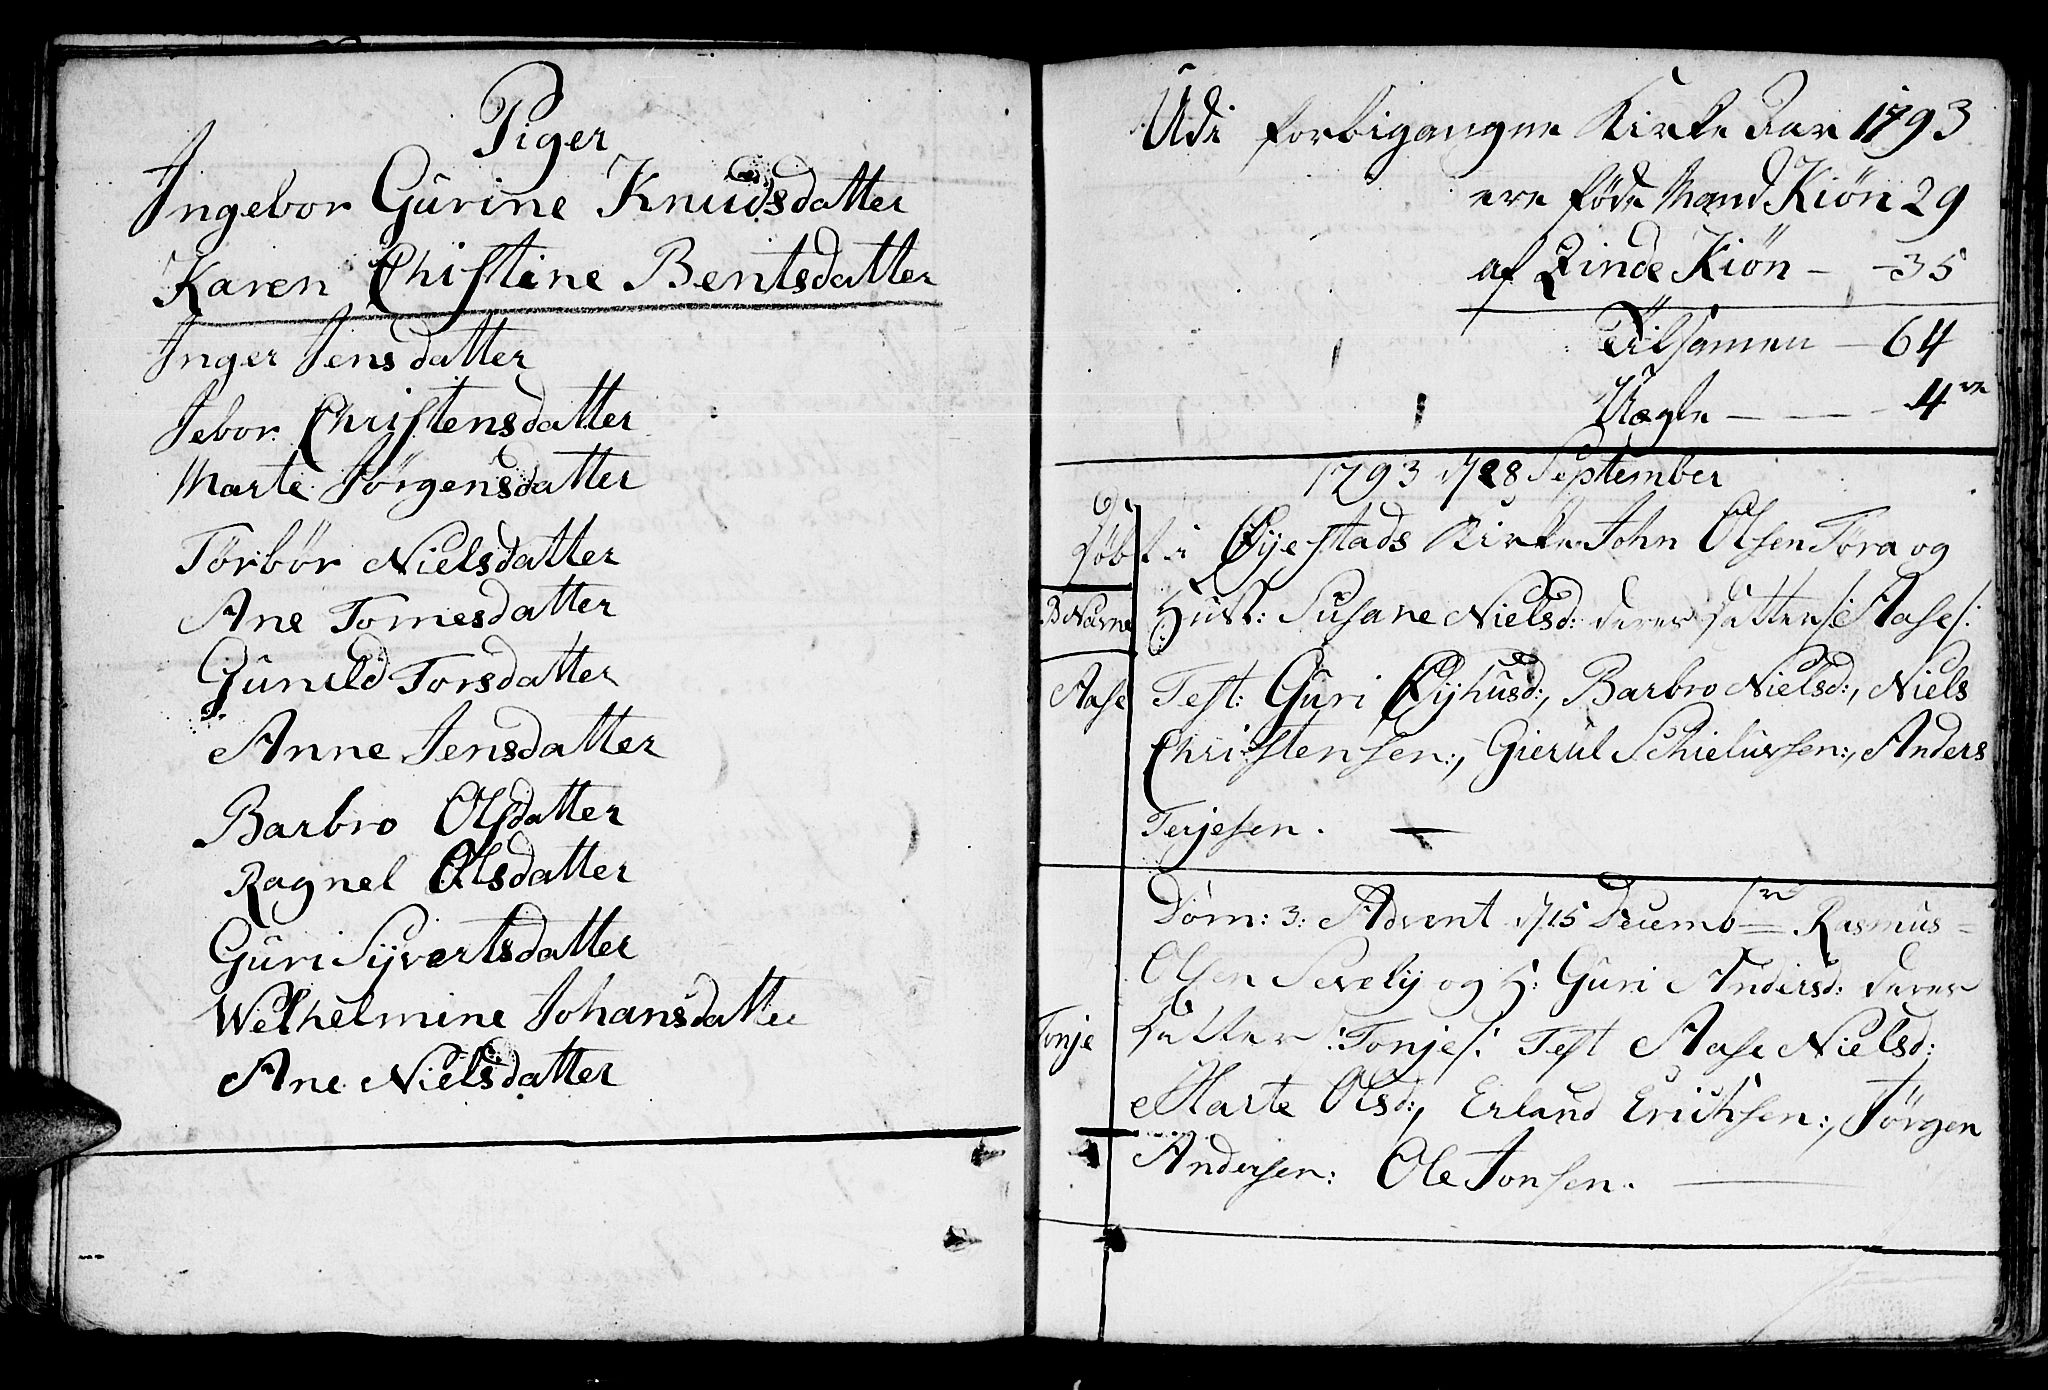 Piger
Ingebor Gurine Knudsdatter
Karen Christine Bentsdatter
Inger Jensdatter
Jebor Christensdatter
Marte Jørgensdatter
Torbør Nielsdatter
Ane Tomesdatter
Gunild Torsdatter
Anne Jensdatter
Barbro Olsdatter
Ragnel Olsdatter
Guri Syvertsdatter
Welhelmine Johansdatter
Ane Nielsdatter
Udi forbigangne Kirke Aar 1793
ere føde Mand Kiøn 29
af Qvinde Kiøn - - 35
Tilsamen - 64
Uægte - - - - 4re
1793 d 28 September
Døbt i Øyestads Kirke John Olsen Tora og
B Navne Hust: Susane Nielsd: deres datter /: Aase /:
Aase Test: Guri Øyhusd:, Barbro Nielsd:, Niels
Christensen:, Gierul Schielufsen:, Anders
Terjesen.
Dom: 3: Advent d 15 Decemb Rasmus
Olsen Sevely og H: Guri Andersd: deres
Tonje datter /: Tonje /: Test Aase Nielsd:
Marte Olsd:, Erland Erichsen:, Jørgen
Andersen: Ole Jonsen.